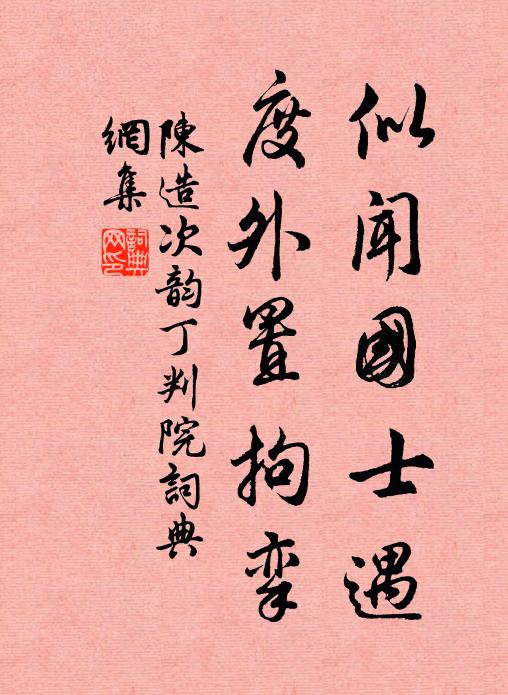 似闻國士遇
度外置拘挛
陳造次韵丁判院詞典
網集
詞典網印